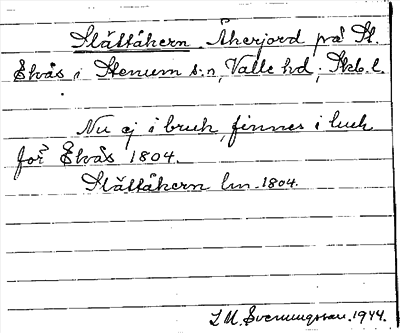 Slättåkern Åkerjord på St.
Ekvås i Stenum s:n, Valle hd, Skb. l.
Nu ej i bruk, finnes i luck
för Ekvås 1804.
Slättåkern lm 1804.
L M. Svenungsson. 1944.